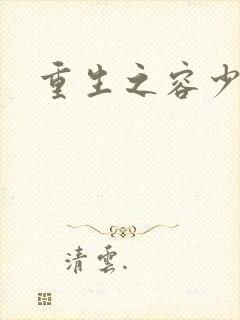 重生之容少
清雲.